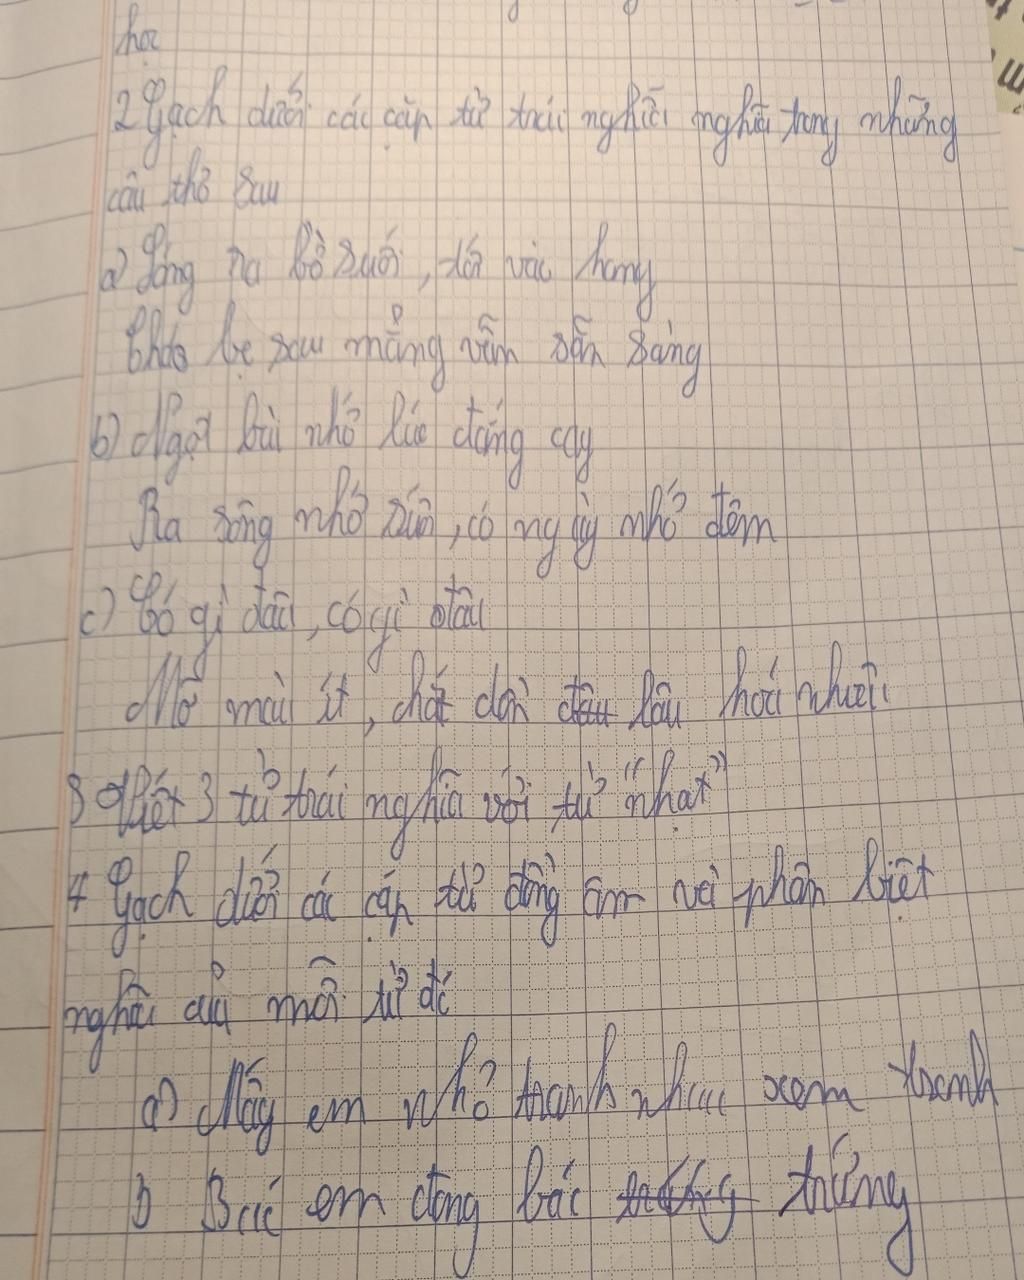 học
2 Gạch dưới các cặp từ trái nghĩa nghĩa trong những
câu thơ sau
a) Sáng ra bờ suối, tối vào hang
Cháo bẹ rau măng vẫn sẵn sàng
b) Ngọt bùi nhớ lúc đắng cay
Ra sông nhớ suối, có ngày nhớ đêm
c) Có gì đâu, có gì đâu
Mỡ màu ít, chắt dồn lâu hoá nhiều
3 Viết 3 từ trái nghĩa với từ "nhạt"
4 Gạch dưới các cặp từ đồng âm và phân biệt
nghĩa của mỗi từ đó
a) Mấy em nhỏ tranh nhau xem tranh
b Bác em đang bác trứng